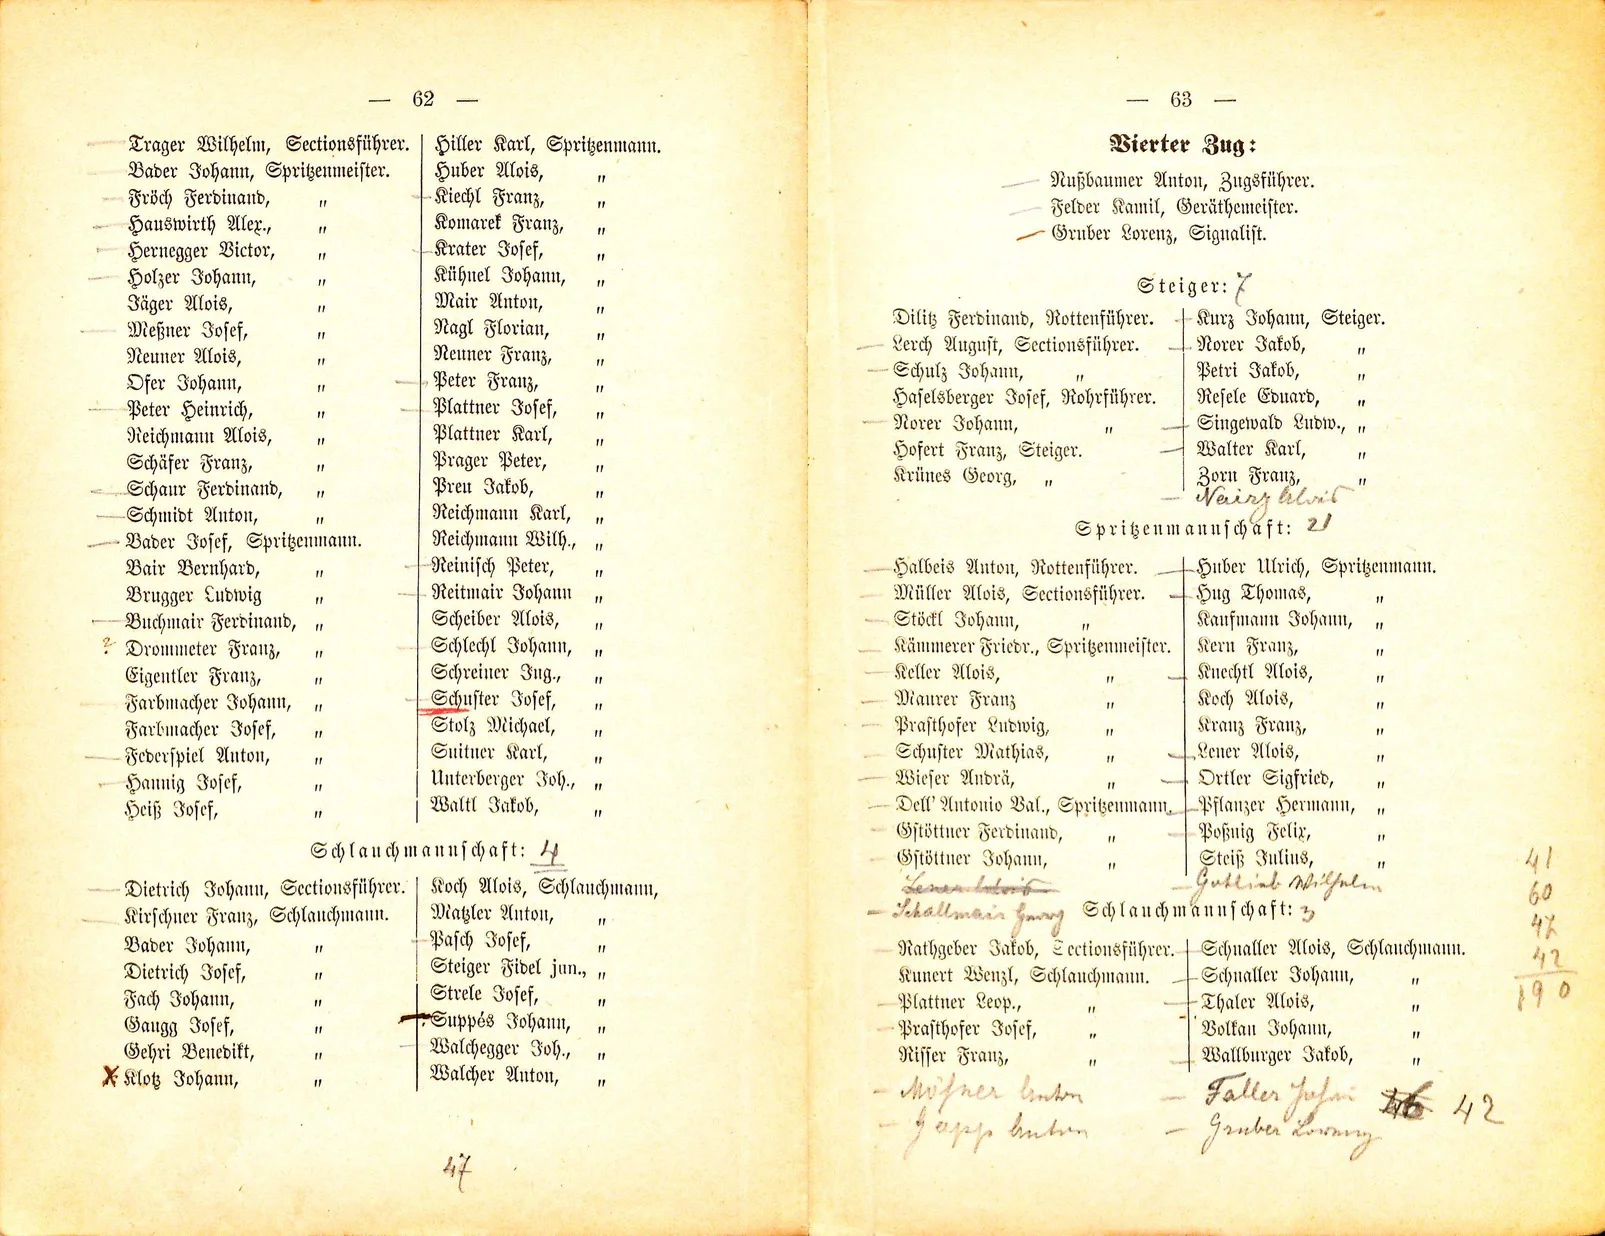 — 62 —
Trager Wilhelm, Sectionsführer.
Bader Johann, Spritzenmeister.
Fröch Ferdinand, „
Hauswirth Alex., „
Hernegger Victor, „
Holzer Johann, „
Jäger Alois, „
Meßner Josef, „
Neuner Alois, „
Ofer Johann, „
Peter Heinrich, „
Reichmann Alois, „
Schäfer Franz, „
Schaur Ferdinand, „
Schmidt Anton, „
Bader Josef, Spritzenmann.
Bair Bernhard, „
Brugger Ludwig „
Buchmair Ferdinand, „
? Drommeter Franz, „
Eigentler Franz, „
Farbmacher Johann, „
Farbmacher Josef, „
Federspiel Anton, „
Hannig Josef, „
Heiß Josef, „
Hiller Karl, Spritzenmann.
Huber Alois, „
Kiechl Franz, „
Komarek Franz, „
Krater Josef, „
Kühnel Johann, „
Mair Anton, „
Nagl Florian, „
Neuner Franz, „
Peter Franz, „
Plattner Josef, „
Plattner Karl, „
Prager Peter, „
Preu Jakob, „
Reichmann Karl, „
Reichmann Wilh., „
Reinisch Peter, „
Reitmair Johann „
Scheiber Alois, „
Schlechl Johann, „
Schreiner Ing., „
Schuster Josef, „
Stolz Michael, „
Suitner Karl, „
Unterberger Joh., „
Waltl Jakob, „
Schlauchmannschaft: 4
Dietrich Johann, Sectionsführer.
Kirschner Franz, Schlauchmann.
Bader Johann, „
Dietrich Josef, „
Fach Johann, „
Gaugg Josef, „
Gehri Benedikt, „
X Klotz Johann, „
Koch Alois, Schlauchmann,
Matzler Anton, „
Pasch Josef, „
Steiger Fidel jun., „
Strele Josef, „
Suppés Johann, „
Walchegger Joh., „
Walcher Anton, „
47
— 63 —
Vierter Zug:
Nußbaumer Anton, Zugsführer.
Felder Kamil, Geräthemeister.
Gruber Lorenz, Signalist.
Steiger: 7
Dilitz Ferdinand, Rottenführer.
Lerch August, Sectionsführer.
Schulz Johann, „
Haselsberger Josef, Rohrführer.
Norer Johann, „
Hofert Franz, Steiger.
Krünes Georg, „
Kurz Johann, Steiger.
Norer Jakob, „
Petri Jakob, „
Resele Eduard, „
Singewald Ludw., „
Walter Karl, „
Zorn Franz, „
Nairz Alois
Spritzenmannschaft: 21
Halbeis Anton, Rottenführer.
Müller Alois, Sectionsführer.
Stöckl Johann, „
Kämmerer Friedr., Spritzenmeister.
Keller Alois, „
Maurer Franz „
Prasthofer Ludwig, „
Schuster Mathias, „
Wieser Andrä, „
Dell' Antonio Val., Spritzenmann.
Gstöttner Ferdinand, „
Gstöttner Johann, „
Lener Alois
Schallmair Georg
Huber Ulrich, Spritzenmann.
Hug Thomas, „
Kaufmann Johann, „
Kern Franz, „
Knechtl Alois, „
Koch Alois, „
Kranz Franz, „
Lener Alois, „
Ortler Sigfried, „
Pflanzer Hermann, „
Poßnig Felix, „
Steiß Julius, „
Gottlieb Wilhelm
Schlauchmannschaft: 3
Rathgeber Jakob, Sectionsführer.
Kunert Wenzl, Schlauchmann.
Plattner Leop., „
Prasthofer Josef, „
Risser Franz, „
Mößner Anton
Gapp Anton
Schnaller Alois, Schlauchmann.
Schnaller Johann, „
Thaler Alois, „
Volkan Johann, „
Wallburger Jakob, „
Faller Johann
Gruber Lorenz
46 42
41
60
47
42
190